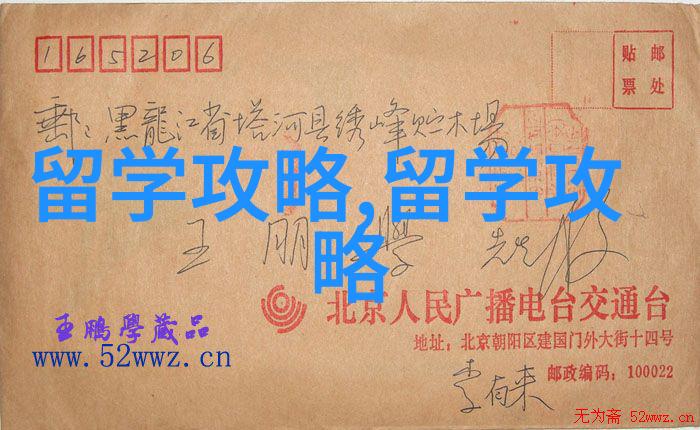 165206
贴 邮
票 处
邮: 黑龍江省塔河县绣峰贮木場
留学攻略,留学攻
略
王 朋 學 先生 收
北京人民广播电台交通台
地址: 北京朝阳区建国门外大街十四号
王鹏學蔵品
www.52wwz.cn
李有来 邮政编码: 100022
无为斋 52wwz.cn